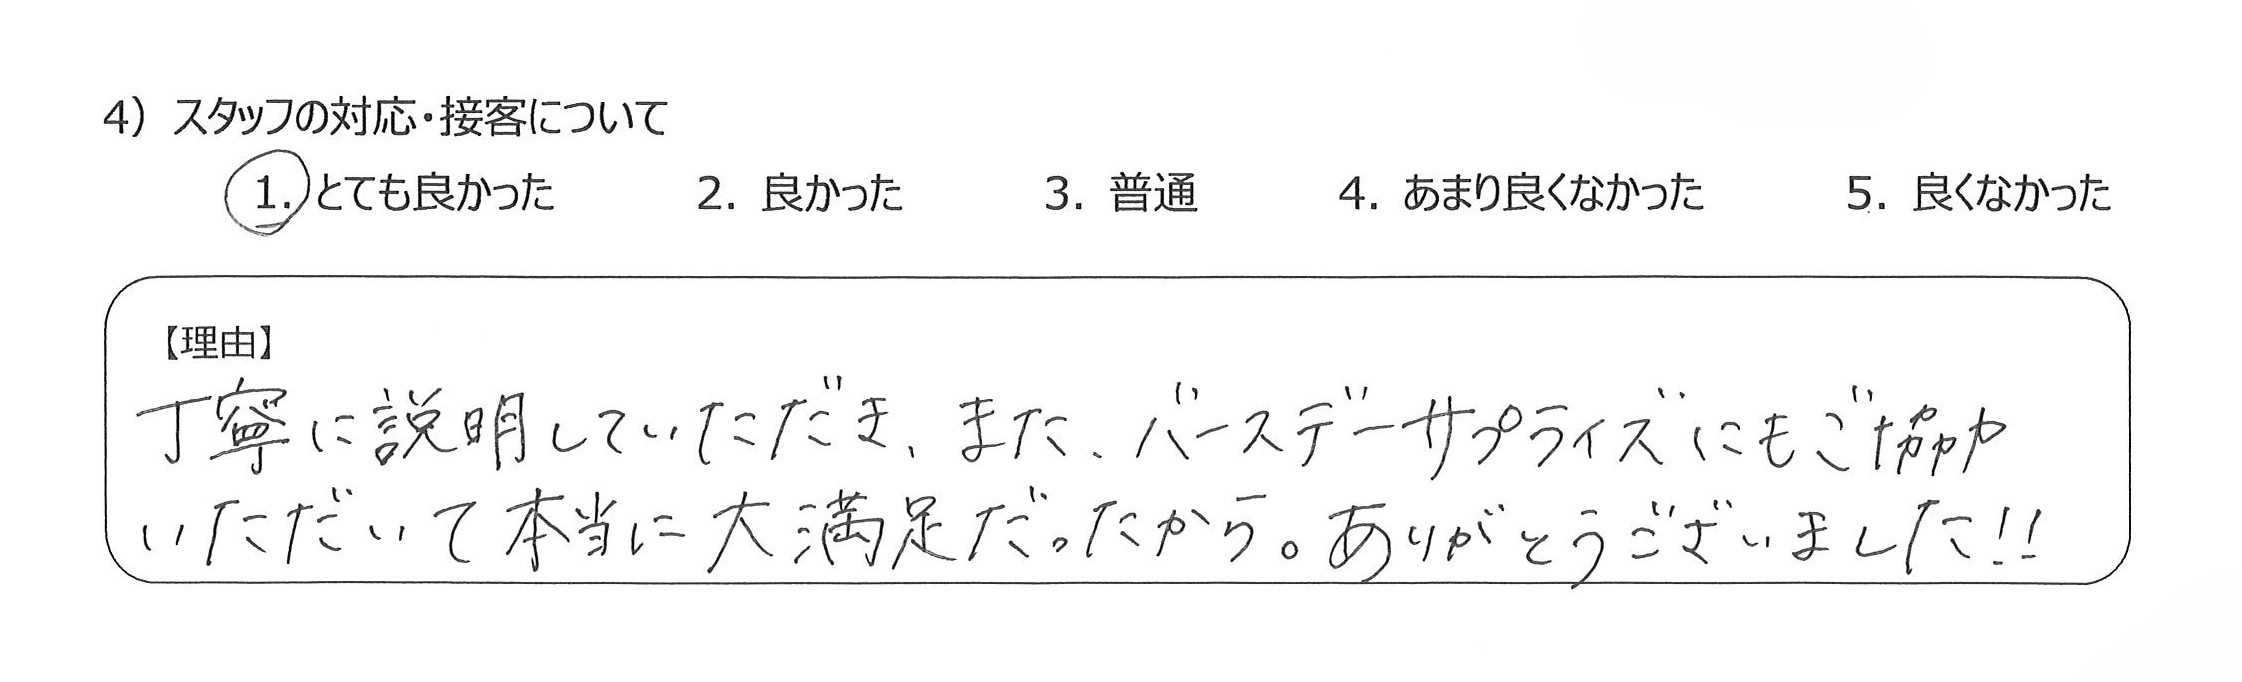 4) スタッフの対応・接客について
1. とても良かった 2. 良かった 3. 普通 4. あまり良くなかった 5. 良くなかった
【理由】
丁寧に説明していただき、また、バースデーサプライズにもご協力
いただいて本当に大満足だったから。ありがとうございました!!